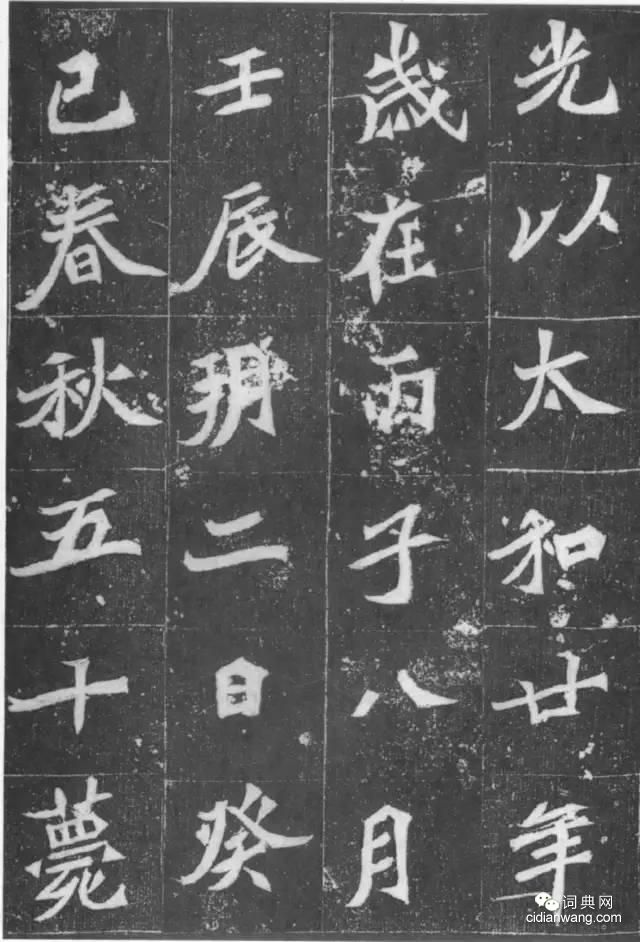 光以太和廿年
歲在丙子八月
壬辰朔二日癸
巳春秋五十薨
词典网
cidianwang.com